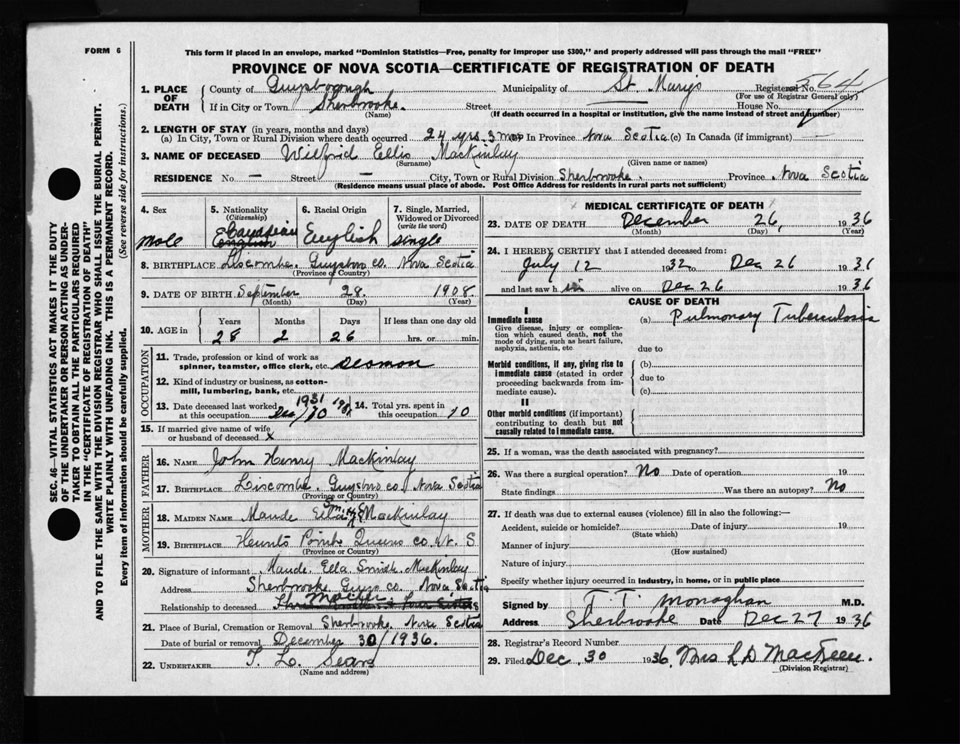 FORM 6
This form if placed in an envelope, marked "Dominion Statistics—Free, penalty for improper use $300," and properly addressed will pass through the mail "FREE"
PROVINCE OF NOVA SCOTIA—CERTIFICATE OF REGISTRATION OF DEATH
SEC. 46—VITAL STATISTICS ACT MAKES IT THE DUTY
OF THE UNDERTAKER OR PERSON ACTING AS UNDER-
TAKER TO OBTAIN ALL THE PARTICULARS REQUIRED
IN THE "CERTIFICATE OF REGISTRATION OF DEATH"
AND TO FILE THE SAME WITH THE DIVISION REGISTRAR WHO SHALL ISSUE THE BURIAL PERMIT.
WRITE PLAINLY WITH UNFADING INK. THIS IS A PERMANENT RECORD.
Every item of information should be carefully supplied. (See reverse side for instructions.)
1. PLACE OF DEATH County of Guysborough Municipality of St. Mary's Registered No. 564
(For use of Registrar General only)
If in City or Town Sherbrooke. Street House No.
(Name) (If death occurred in a hospital or institution, give the name instead of street and number)
2. LENGTH OF STAY (in years, months and days)
(a) In City, Town or Rural Division where death occurred 24 yrs. 3 mos In Province Nova Scotia (c) In Canada (if immigrant)
3. NAME OF DECEASED Wilfrid Ellis MacKinlay
(Surname) (Given name or names)
RESIDENCE No — Street — City, Town or Rural Division Sherbrooke. Province Nova Scotia
(Residence means usual place of abode. Post Office Address for residents in rural parts not sufficient)
4. Sex Male
5. Nationality (Citizenship) Canadian English
6. Racial Origin English
7. Single, Married, Widowed or Divorced (write the word) Single
8. BIRTHPLACE Liscombe. Guysboro co. Nova Scotia
(Province or County)
9. DATE OF BIRTH September 28. 1908.
(Month) (Day) (Year)
10. AGE in Years Months Days If less than one day old
28 2 26 hrs. or min.
OCCUPATION
11. Trade, profession or kind of work as
spinner, teamster, office clerk, etc. Seaman
12. Kind of industry or business, as cotton-
mill, lumbering, bank, etc.
13. Date deceased last worked at this occupation Dec/10 1931 14. Total yrs. spent in this occupation 10
15. If married give name of wife
or husband of deceased x
FATHER
16. NAME John Henry MacKinlay
17. BIRTHPLACE Liscombe. Guysboro co. Nova Scotia
(Province or Country)
MOTHER
18. MAIDEN NAME Maude Ella Smith MacKinlay
19. BIRTHPLACE Hunts Point Queens co. N. S
(Province or Country)
20. Signature of informant Maude. Ella Smith MacKinlay
Address Sherbrooke Guys co. Nova Scotia
Relationship to deceased Mother
21. Place of Burial, Cremation or Removal Sherbrooke. Nova Scotia
Date of burial or removal December 30/1936.
22. UNDERTAKER T. L. Sears
(Name and address)
MEDICAL CERTIFICATE OF DEATH
23. DATE OF DEATH December 26, 1936
(Month) (Day) (Year)
24. I HEREBY CERTIFY that I attended deceased from:
July 12 1932 to Dec 26 1936
and last saw him alive on Dec 26 1936
CAUSE OF DEATH
I
Immediate cause (a) Pulmonary Tuberculosis
Give disease, injury or complica-
tion which caused death, not the
mode of dying, such as heart failure,
asphyxia, asthenia, etc due to
Morbid conditions, if any, giving rise to (b)
immediate cause (stated in order due to
proceeding backwards from im-
mediate cause). (c)
II
Other morbid conditions (if important)
contributing to death but not
causally related to Immediate cause.
25. If a woman, was the death associated with pregnancy?
26. Was there a surgical operation? No Date of operation 19
State findings Was there an autopsy? No
27. If death was due to external causes (violence) fill in also the following:—
Accident, suicide or homicide? Date of injury 19
(State which)
Manner of injury
(How sustained)
Nature of injury
Specify whether injury occurred in industry, in home, or in public place
Signed by T. T. Monaghan M.D.
Address Sherbrooke Date Dec 27 1936
28. Registrar's Record Number
29. Filed Dec 30 1936, Mrs L D MacKeen.
(Division Registrar)